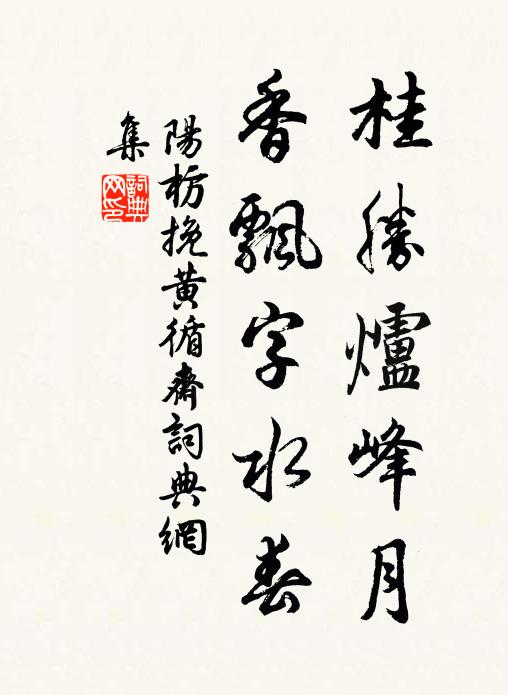 桂勝爐峰月
香飄字水春
陽枋挽黄循齋詞典網
集
詞典
网印